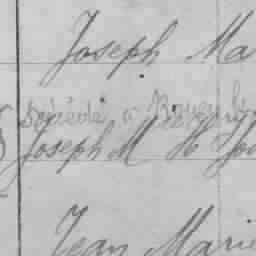 Joseph Ma
décédé à Rouen le
Joseph M H Jo
Jean Marie